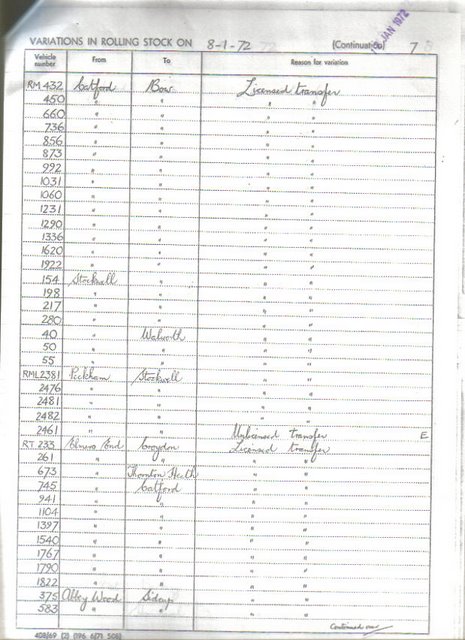 JAN 1972
VARIATIONS IN ROLLING STOCK ON 8-1-72 (Continuation) 7
Vehicle number From To Reason for variation
RM 432 Catford Bow Licensed transfer
450 " " " "
660 " " " "
736 " " " "
856 " " " "
873 " " " "
992 " " " "
1031 " " " "
1060 " " " "
1231 " " " "
1290 " " " "
1336 " " " "
1620 " " " "
1922 " " " "
154 Stockwell " " "
198 " " " "
217 " " " "
280 " " " "
40 " Walworth " "
50 " " " "
55 " " " "
RML2381 Peckham Stockwell " "
2476 " " " "
2481 " " " "
2482 " " " "
2461 " " Unlicensed transfer E
RT 233 Elmers End Croydon Licensed transfer
261 " " " "
673 " Thornton Heath " "
745 " Catford " "
941 " " " "
1104 " " " "
1397 " " " "
1540 " " " "
1767 " " " "
1790 " " " "
1822 " " " "
375 Abbey Wood Sidcup " "
583 " " " "
Continued over